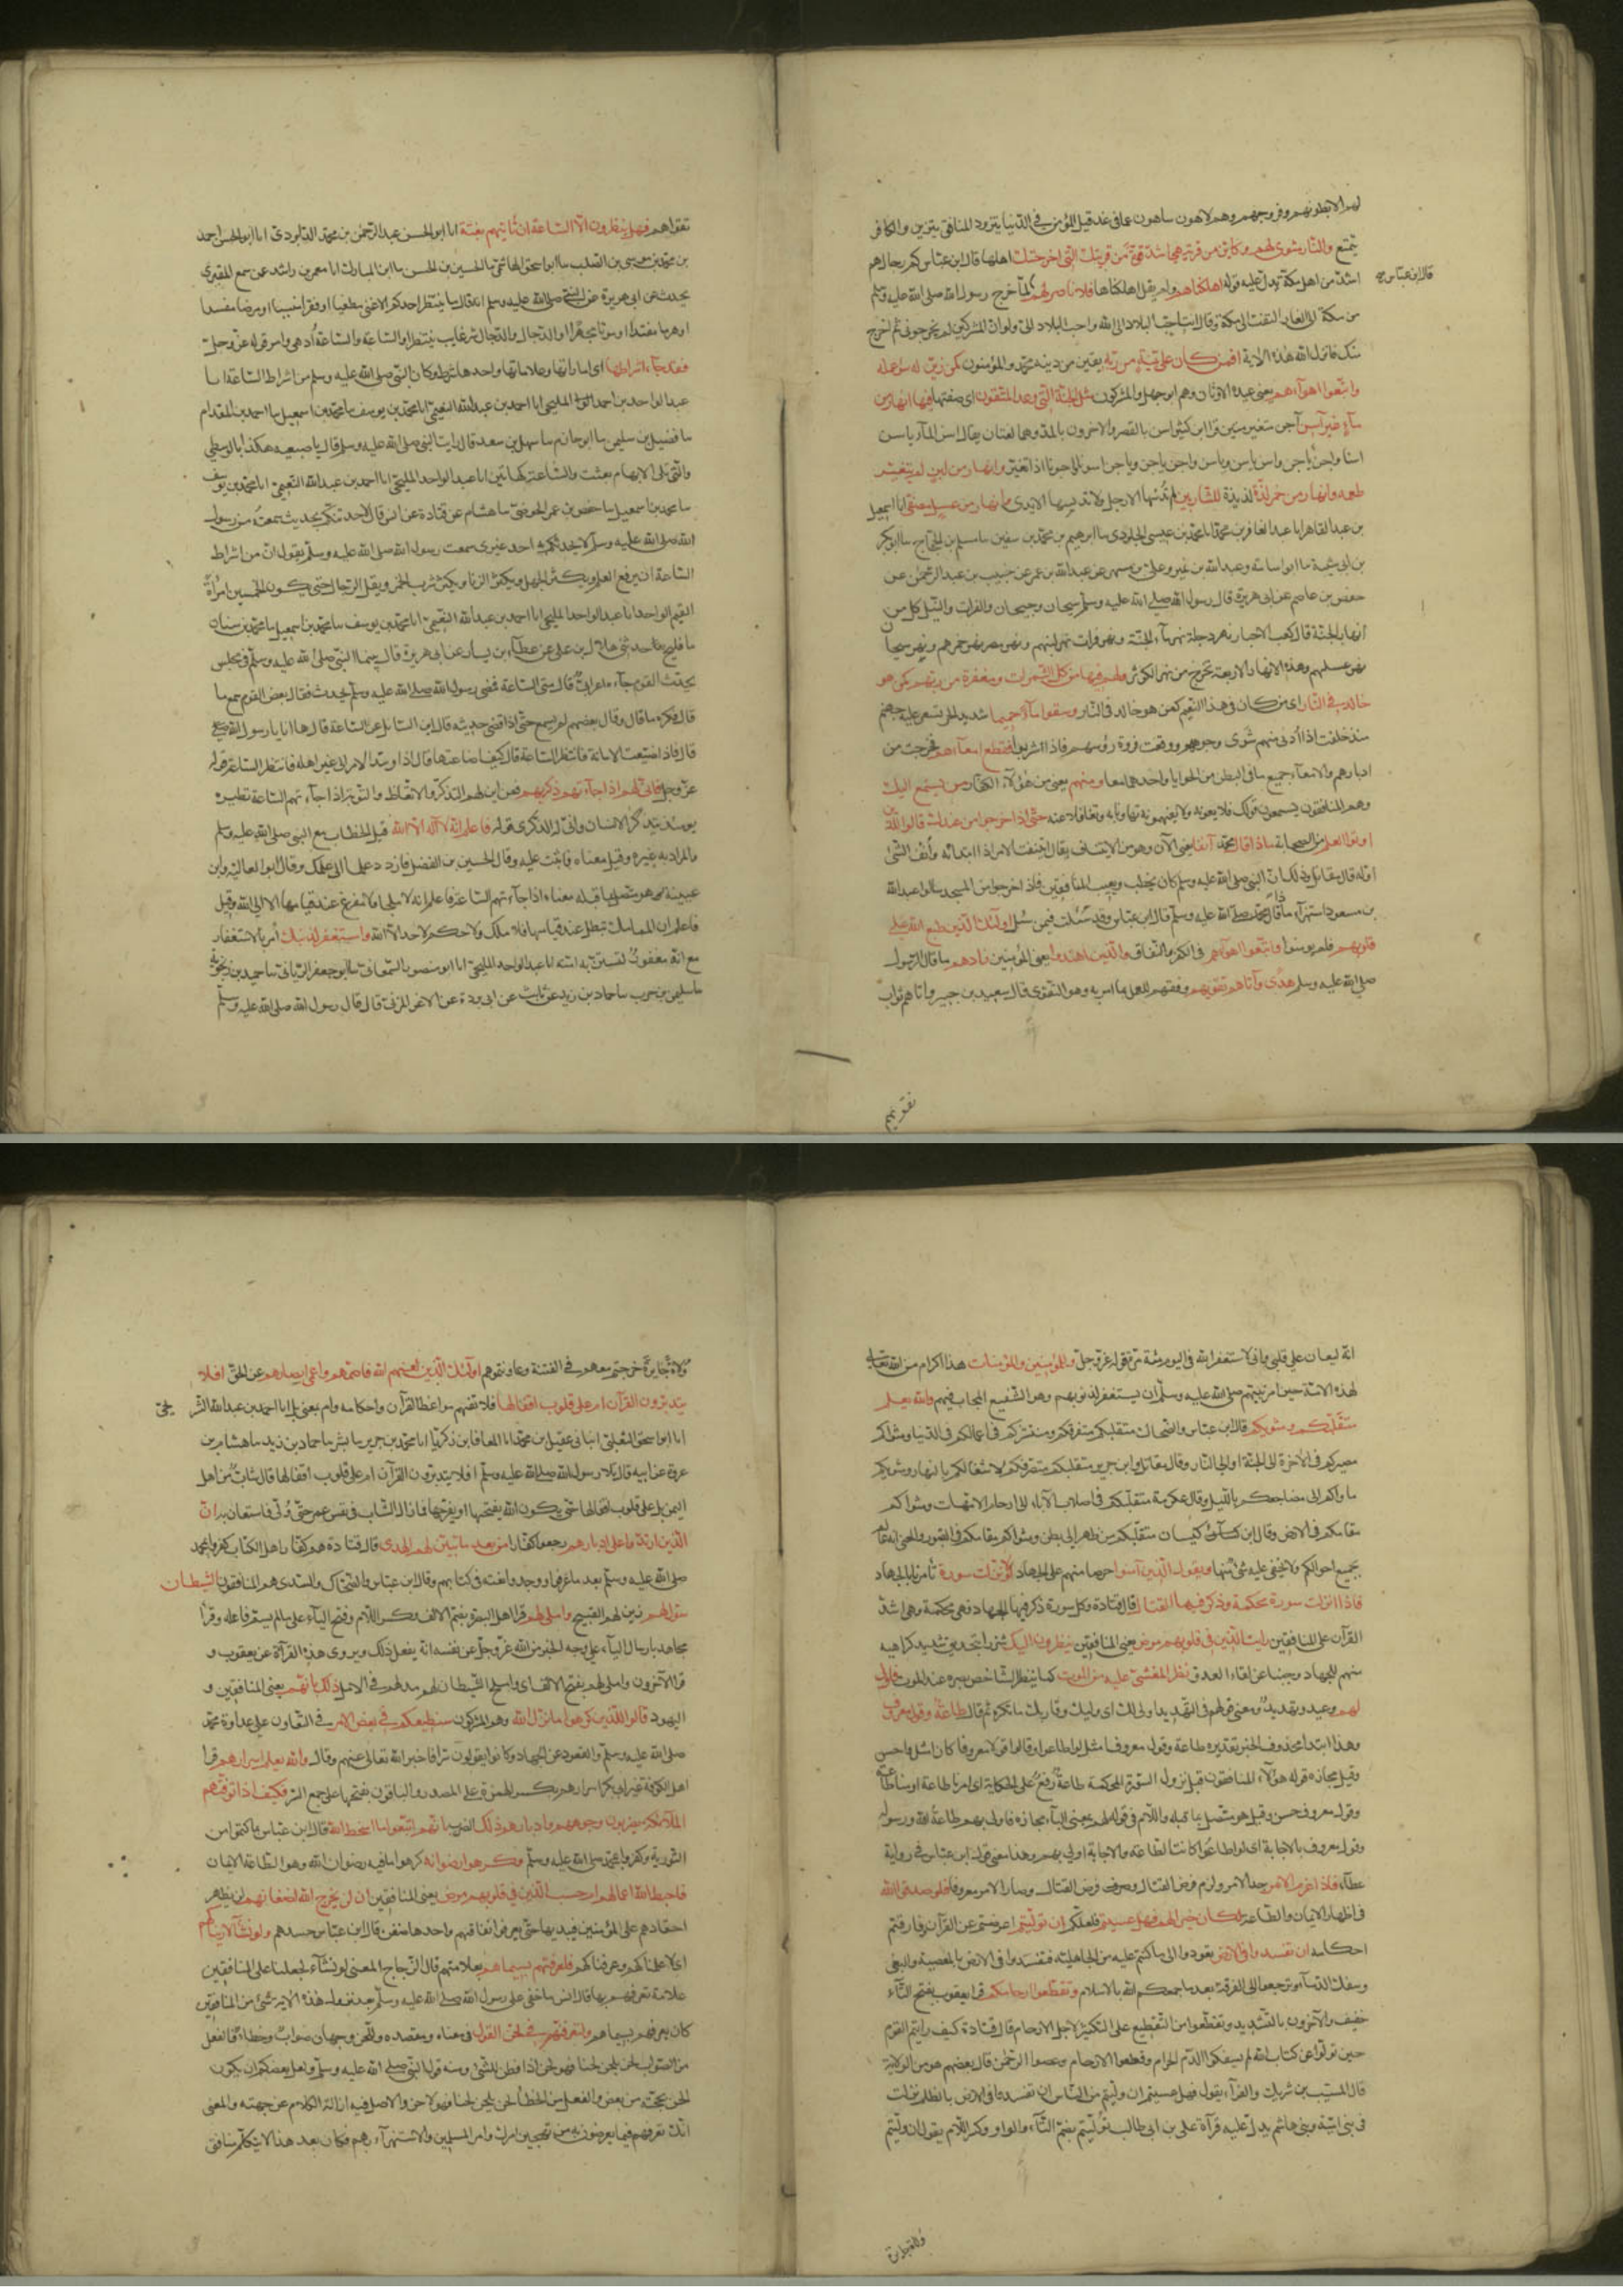 لهم الا بطونهم وفروجهم وهم لاهون ساهون عما في غد قيل المؤمن في الدنيا يتزود والمنافق يتزين والكافر
يتمتع والنار مثوى لهم وكاين من قرية هي اشد قوة من قريتك التي اخرجتك اهلها قال ابن عباس كم رجال هم
اشد من اهل مكة يدل عليه قوله اهلكناهم ولم يقل اهلكناها فلا ناصر لهم لما خرج رسول الله صلى الله عليه وسلم
قال ابن عباس
من مكة الى الغار التفت الى مكة وقال انت احب البلاد الى الله واحب البلاد الي ولو ان المشركين لم يخرجوني لم اخرج
منك فانزل الله هذه الاية افمن كان على بينة من ربه يقين من دينه محمد والمؤمنون كمن زين له سوء عمله
واتبعوا اهواءهم يعني عبدة الاوثان وهم ابو جهل والمشركون مثل الجنة التي وعد المتقون اى صفتها فيها انهار من
ماء غير آسن آجن متغير منتن قرا ابن كثير اسن بالقصر والاخرون بالمد وهما لغتان يقال اسن الماء ياسن
اسنا واجن ياجن واسن ياسن وياسن واجن ياجن وياجن اسونا واجونا اذا تغير وانهار من لبن لم يتغير
طعمه وانهار من خمر لذة لذيذة للشاربين لم تدنسها الارجل ولا تدنسها الايدى وانهار من عسل مصفى انا اسمعيل
بن عبد القاهر انا عبد الغافر بن محمد انا محمد بن عيسى الجلودى سا ابرهيم بن محمد بن سفين سا مسلم بن الحجاج سا ابو بكر
بن ابى شيبة سا ابو اسامة وعبد الله بن نمير وعلى بن مسهر عن عبيد الله بن عمر عن خبيب بن عبد الرحمن عن
حفص بن عاصم عن ابى هريرة قال رسول الله صلى الله عليه وسلم سيحان وجيحان والفرات والنيل كل من
انهار الجنة قال كعب الاحبار نهر دجلة نهر ماء الجنة ونهر فرات نهر لبنهم ونهر مصر نهر خمرهم ونهر سيحان
نهر عسلهم وهذه الانهار الاربعة تخرج من نهر الكوثر ولهم فيها من كل الثمرات ومغفرة من ربهم كمن هو
خالد في النار اى من كان في هذا النعيم كمن هو خالد في النار وسقوا ماء حميما شديد الحر تسعر عليه جهنم
منذ خلقت اذا ادنى منهم شوى وجوههم ووقعت فروة رؤسهم فاذا شربوه قطع امعاءهم فخرجت من
ادبارهم والامعاء جميع ما في البطن من الحوايا واحدها معا ومنهم يعني من هؤلاء الكفار من يستمع اليك
وهم المنافقون يستمعون قولك فلا يعونه ولا يفهمونه تهاونا به وتغافلا عنه حتى اذا خرجوا من عندك قالوا للذين
اوتوا العلم من الصحابة ماذا قال محمد آنفا يعني الآن وهو من الايتناف يقال ايتنفت الامر اذا ابتداته وأنف الشئ
اوله قال مقاتل وذلك ان النبي صلى الله عليه وسلم كان يخطب ويعيب المنافقين فاذا خرجوا من المسجد سالوا عبد الله
بن مسعود استهزاء ماذا قال محمد صلى الله عليه وسلم قال ابن عباس وقد سئلت فيمن سئل اولئك الذين طبع الله على
قلوبهم فلم يومنوا واتبعوا اهواءهم في الكفر والنفاق والذين اهتدوا يعني المؤمنين زادهم ما قال الرسول
صلى الله عليه وسلم هدى وآتاهم تقويهم وفقهم للعمل بما امر به وهو التقوى قال سعيد بن جبير واتاهم ثواب
تقويهم
تقواهم فهل ينظرون الا الساعة ان تاتيهم بغتة انا ابو الحسن عبد الرحمن بن محمد الداودى انا ابو الحسن احمد
بن محمد بن موسى بن الصلت سا ابو اسحق الهاشمي سا الحسين بن الحسن سا ابن المبارك انا معمر بن راشد عن من سمع المقبرى
يحدث عن ابى هريرة عن النبي صلى الله عليه وسلم انه قال ما ينتظر احدكم الا غنى مطغيا او فقرا منسيا او مرضا مفسدا
او هرما مفندا او موتا مجهزا او الدجال والدجال شر غايب ينتظر او الساعة والساعة أدهى وامر قوله عز وجل
فقد جاء اشراطها اى اماراتها وعلاماتها واحدها شرط وكان النبي صلى الله عليه وسلم من اشراط الساعة انا
عبد الواحد بن احمد المليحي انا احمد بن عبد الله النعيمي انا محمد بن يوسف سا محمد بن اسمعيل سا احمد بن المقدام
سا فضيل بن سليمن سا ابو حازم سا سهل بن سعد قال رايت النبي صلى الله عليه وسلم قال باصبعيه هكذا بالوسطى
والتي تلى الابهام بعثت والساعة كهاتين انا عبد الواحد المليحي انا احمد بن عبد الله النعيمي انا محمد بن يوسف
سا محمد بن اسمعيل سا حفص بن عمر الحوضي سا هشام عن قتادة عن انس قال لاحدثنكم بحديث سمعته من رسول
الله صلى الله عليه وسلم لا يحدثكم به احد غيرى سمعت رسول الله صلى الله عليه وسلم يقول ان من اشراط
الساعة ان يرفع العلم ويكثر الجهل ويكثر الزنا ويكثر شرب الخمر ويقل الرجال حتى يكون لخمسين امرأة
القيم الواحد انا عبد الواحد المليحي انا احمد بن عبد الله النعيمي انا محمد بن يوسف سا محمد بن اسمعيل سا محمد بن سنان
سا فليح حدثني هلال بن على عن عطاء بن يسار عن ابى هريرة قال بينما النبي صلى الله عليه وسلم في مجلس
يحدث القوم جاءه اعرابى قال متى الساعة فمضى رسول الله صلى الله عليه وسلم يحدث فقال بعض القوم سمع ما
قال فكره ما قال وقال بعضهم لم يسمع حتى اذا قضى حديثه قال اين السائل عن الساعة قال ها انا يا رسول الله
قال فاذا ضيعت الامانة فانتظر الساعة قال كيف اضاعتها قال اذا وسد الامر الى غير اهله فانتظر الساعة قوله
عز وجل فانى لهم اذا جاءتهم ذكريهم فمن اين لهم التذكر والاتعاظ والتوبة اذا جاءتهم الساعة نظيره
يومئذ يتذكر الانسان وانى له الذكرى قوله فاعلم انه لا اله الا الله قيل الخطاب مع النبي صلى الله عليه وسلم
والمراد به غيره وقيل معناه فاثبت عليه وقال الحسين بن الفضل فازدد علما الى علمك وقال ابو العالية وابن
عيينة هو متصل بما قبله معناه اذا جاءتهم الساعة فاعلم انه لا ملجا ولا مفزع عند قيامها الا الى الله وقيل
فاعلم ان الممالك تبطل عند قيامها فلا ملك ولا حكم لاحد الا الله واستغفر لذنبك أمر بالاستغفار
مع انه مغفور له لتستن به امته انا عبد الواحد المليحي انا ابو منصور السمعاني سا ابو جعفر الرياني سا حميد بن زنجويه
سا سليمن بن حرب سا حماد بن زيد عن ثابت عن ابى بردة عن الاغر المزني قال قال رسول الله صلى الله عليه وسلم
انه ليغان على قلبي واني لاستغفر الله في اليوم مئة مرة قوله عز وجل وللمؤمنين والمؤمنات هذا اكرام من الله تعالى
لهذه الامة حين امر نبيهم صلى الله عليه وسلم ان يستغفر لذنوبهم وهو الشفيع المجاب فيهم والله يعلم
متقلبكم ومثويكم قال ابن عباس والضحاك متقلبكم متصرفكم ومنتشركم في اعمالكم في الدنيا ومثواكم
مصيركم في الاخرة الى الجنة او الى النار وقال مقاتل وابن جرير متقلبكم متصرفكم لاشغالكم بالنهار ومثويكم
ماواكم الى مضاجعكم بالليل وقال عكرمة متقلبكم في اصلاب الآباء الى ارحام الامهات ومثواكم
مقامكم في الارض وقال ابن كيسان متقلبكم من ظهر الى بطن ومثواكم مقامكم في القبور والمعنى انه عالم
بجميع احوالكم ولا يخفى عليه شئ منها ويقول الذين آمنوا حرصا منهم على الجهاد لولا نزلت سورة تأمرنا بالجهاد
فاذا انزلت سورة محكمة وذكر فيها القتال قال قتادة وكل سورة ذكر فيها الجهاد فهى محكمة وهى اشد
القرآن على المنافقين رايت الذين في قلوبهم مرض يعني المنافقين ينظرون اليك شزرا بتحديق شديد كراهية
منهم للجهاد وجبنا عن لقاء العدو نظر المغشي عليه من الموت كما ينظر الشاخص بصره عند الموت فاولى
لهم وعيد وتهديد ومعنى قولهم في التهديد اولى لك اى وليك وقاربك ما تكره ثم قال طاعة وقول معروف
وهذا ابتداء محذوف الخبر تقديره طاعة وقول معروف امثل اى لو اطاعوا وقالوا قولا معروفا كان امثل واحسن
وقيل مجازه قوله هؤلاء المنافقون قبل نزول السورة المحكمة طاعة رفع على الحكاية اى امرنا طاعة او منا طاعة
وقول معروف حسن وقيل هو متصل بما قبله واللام في قوله لهم بمعنى الباء مجازه فاولى بهم طاعة الله ورسوله
وقول معروف بالاجابة اى لو اطاعوا كانت الطاعة والاجابة اولى بهم وهذا معنى قول ابن عباس في رواية
عطاء فاذا عزم الامر جد الامر ولزم فرض القتال وصار الامر معروفا فلو صدقوا الله
في اظهار الايمان والطاعة لكان خيرا لهم فهل عسيتم فلعلكم ان توليتم اعرضتم عن القرآن وفارقتم
احكامه ان تفسدوا في الارض تعودوا الى ما كنتم عليه من الجاهلية فتفسدوا في الارض بالمعصية والبغى
وسفك الدماء وترجعوا الى الفرقة بعد ما جمعكم الله بالاسلام وتقطعوا ارحامكم قرا يعقوب بفتح التاء
خفيف والآخرون بالتشديد وتقطعوا من التقطيع على التكثير لاجل الارحام قال قتادة كيف رايتم القوم
حين تولوا عن كتاب الله الم يسفكوا الدم الحرام وقطعوا الارحام وعصوا الرحمن قال بعضهم هو من الولاية
قال المسيب بن شريك والفراء يقول فهل عسيتم ان وليتم امر الناس ان تفسدوا في الارض بالظلم نزلت
في بنى امية وبنى هاشم يدل عليه قرآءة على بن ابى طالب توليتم بضم التاء والواو وكسر اللام يقول ان وليتم
ولاة جايرة خرجتم معهم في الفتنة وعاونتموهم اولئك الذين لعنهم الله فاصمهم واعمى ابصارهم عن الحق افلا
يتدبرون القرآن ام على قلوب اقفالها فلا تفهم مواعظ القرآن واحكامه وام بمعنى بل انا احمد بن عبد الله الشر
يحى
انا ابو اسحق الثعلبي انبانى عقيل بن محمد انا المعافا بن زكريا انا محمد بن جرير سا بشر سا حماد بن زيد سا هشام بن
عروة عن ابيه قال تلا رسول الله صلى الله عليه وسلم افلا يتدبرون القرآن ام على قلوب اقفالها قال شاب من اهل
اليمن بل على قلوب اقفالها حتى يكون الله يفتحها او يفرجها فما زال الشاب في نفس عمر حتى ولى فاستعان به ان
الذين ارتدوا على ادبارهم رجعوا كفارا من بعد ما تبين لهم الهدى قال قتادة هم كفار اهل الكتاب كفروا بمحمد
صلى الله عليه وسلم بعد ما عرفوه ووجدوا نعته في كتابهم وقال ابن عباس والضحاك والسدى هم المنافقون الشيطان
سول لهم زين لهم القبيح واملى لهم قرا اهل البصرة بضم الالف وكسر اللام وفتح الياء على مالم يسم فاعله وقرأ
مجاهد بارسال الياء على وجه الخبر من الله عز وجل عن نفسه انه يفعل ذلك ويروى هذه القرآة عن يعقوب و
قرا الآخرون واملى لهم بفتح الالف اى واملى الشيطان لهم مد لهم في الامل ذلك بانهم يعني المنافقين و
اليهود قالوا للذين كرهوا ما نزل الله وهم المشركون سنطيعكم في بعض الامر في التعاون على عداوة محمد
صلى الله عليه وسلم والقعود عن الجهاد وكانوا يقولون سرا فاخبر الله تعالى عنهم وقال والله يعلم اسرارهم قرا
اهل الكوفة غير ابى بكر اسرارهم بكسر الهمزة على المصدر والباقون بفتحها على جمع السر فكيف اذا توفتهم
الملائكة يضربون وجوههم وادبارهم ذلك الضرب بانهم اتبعوا ما اسخط الله قال ابن عباس بما كتموا من
التورية وكفروا بمحمد صلى الله عليه وسلم وكرهوا رضوانه كرهوا ما فيه رضوان الله وهو الطاعة والايمان
فاحبط الله اعمالهم ام حسب الذين في قلوبهم مرض يعني المنافقين ان لن يخرج الله اضغانهم لن يظهر
احقادهم على المؤمنين فيبديها حتى يعرفوا نفاقهم واحدها ضغن قال ابن عباس حسدهم ولو نشاء لاريناكهم
اى لاعلمناكهم وعرفناكهم فلعرفتهم بسيماهم بعلامتهم قال الزجاج المعنى لو نشآء لجعلنا على المنافقين
علامة تعرفهم بها قال انس ما خفى على رسول الله صلى الله عليه وسلم بعد نزول هذه الاية شئ من المنافقين
كان يعرفهم بسيماهم ولتعرفنهم في لحن القول في معناه ومقصده واللحن وجهان صواب وخطاء فالفعل
من الصواب لحن يلحن لحنا فهو لحن اذا فطن للشئ ومنه قول النبي صلى الله عليه وسلم ولعل بعضكم ان يكون
الحن بحجته من بعض والفعل من الخطأ لحن يلحن لحنا فهو لاحن والاصل فيه ازالة الكلام عن جهته والمعنى
انك تعرفهم فيما يعرضون به من تهجين امرك وامر المسلمين والاستهزآء بهم فكان بعد هذا لا يتكلم منافق